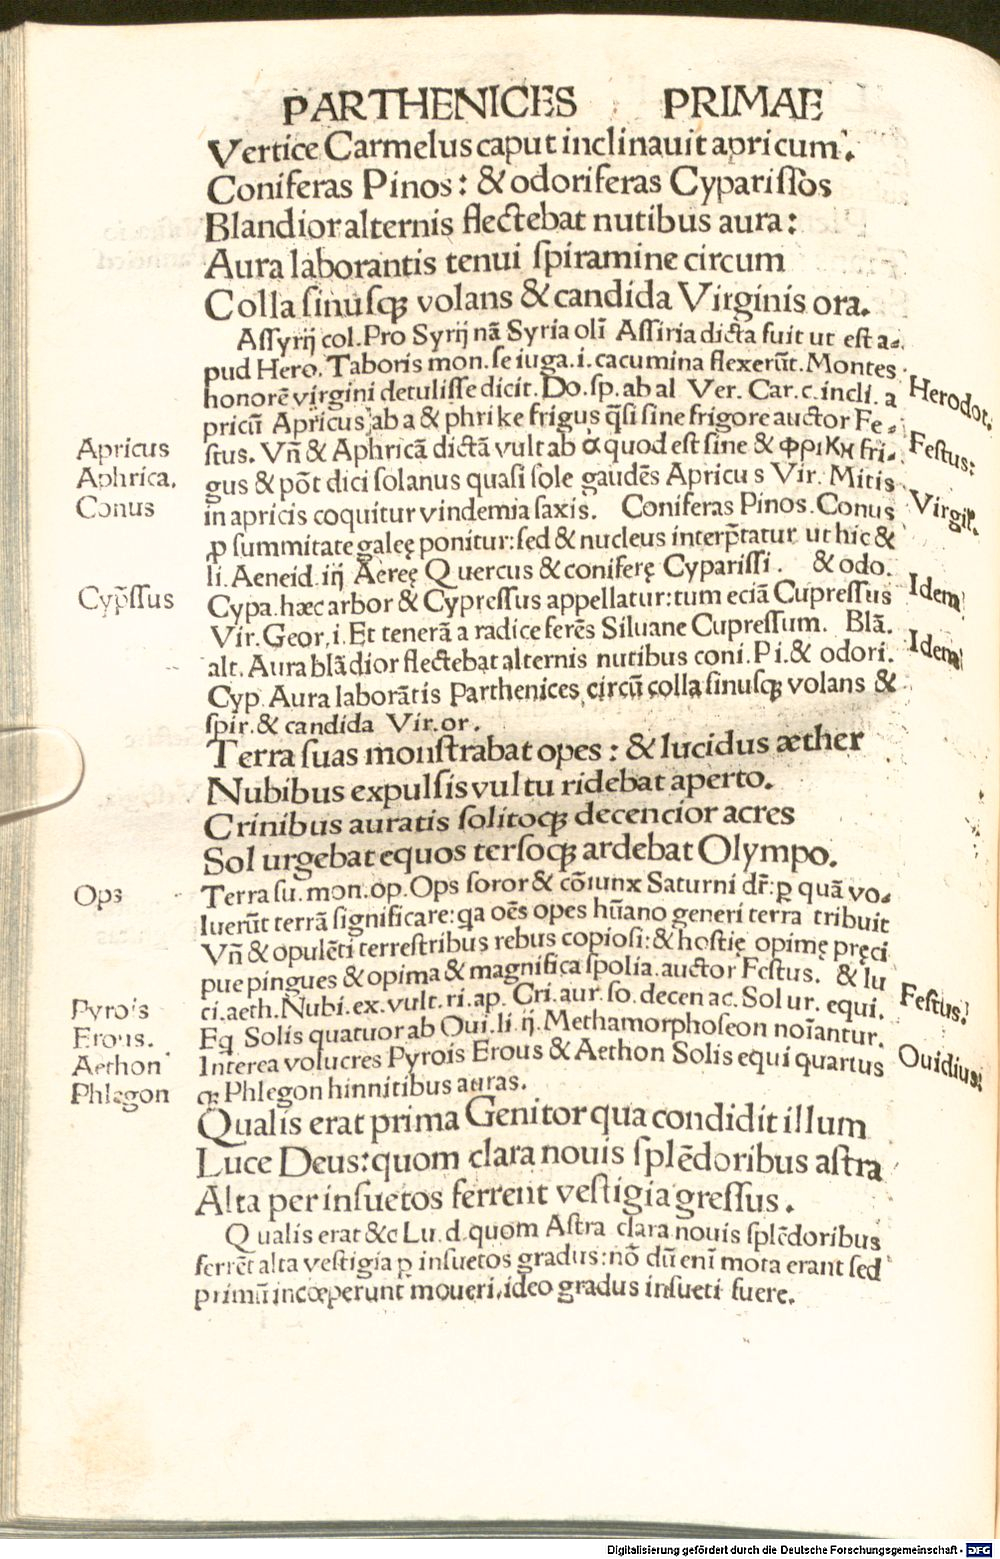 PARTHENICES PRIMAE
Vertice Carmelus caput inclinauit apricum.
Coniferas Pinos: & odoriferas Cyparissos
Blandior alternis flectebat nutibus aura:
Aura laborantis tenui spiramine circum
Colla sinusqꝫ volans & candida Virginis ora.
Assyrij col. Pro Syrij nā Syria oli̅ Assiria dicta fuit ut est a-
pud Hero. Taboris mon. se iuga .i. cacumina flexerūt. Montes
honorē virgini detulisse dicit. Do. sp. ab al Ver. Car. c. incli. a
Herodot.
pricū Apricus ab a & phrike frigus q̄si sine frigore auctor Fe-
Apricus
stus. Vn̄ & Aphricā dictā vult ab α quod est sine & φρικη fri-
Festus:
Aphrica.
gus & pōt dici solanus quasi sole gaudēs Apricus Vir. Mitis
Conus
in apricis coquitur vindemia saxis. Coniferas Pinos. Conus
Virgil.
ꝓ summitate galeę ponitur: sed & nucleus interp̄tatur ut hic &
li. Aeneid. iij Aereę Quercus & coniferę Cyparissi. & odo.
Cyp̄ssus
Cypa. hæc arbor & Cypressus appellatur: tum eciā Cupressus
Idem
Vir. Geor. i. Et tenerā a radice ferēs Siluane Cupressum. Blā.
alt. Aura blādior flectebat alternis nutibus coni. Pi. & odori.
Idem
Cyp. Aura laborātis Parthenices circū colla sinusqꝫ volans &
spir. & candida Vir. or.
Terra suas monstrabat opes: & lucidus æther
Nubibus expulsis vultu ridebat aperto.
Crinibus auratis solitoqꝫ decencior acres
Sol urgebat equos tersoqꝫ ardebat Olympo.
Ops
Terra su. mon. op. Ops soror & cōiunx Saturni dr̄: ꝑ quā vo-
luerūt terrā significare: qa oēs opes hūano generi terra tribuit
Vn̄ & opulēti terrestribus rebus copiosi: & hostię opimę pręci
pue pingues & opima & magnifica spolia. auctor Festus. & lu
Festus:
Pyrois
ci. aeth. Nubi. ex. vult. ri. ap. Cri. aur. so. decen ac. Sol ur. equi.
Erous.
Eq̄ Solis quatuor ab Oui. li. ij. Methamorphoseon noīantur.
Aethon
Interea volucres Pyrois Erous & Aethon Solis equi quartus
Ouidius:
Phlegon
qꝫ Phlegon hinnitibus auras.
Qualis erat prima Genitor qua condidit illum
Luce Deus: quom clara nouis splēdoribus astra
Alta per insuetos ferrent vestigia gressus.
Qualis erat &c Lu. d. quom Astra clara nouis splēdoribus
ferrēt alta vestigia ꝑ insuetos gradus: nō dū enī mota erant sed
primū incœperunt moueri, ideo gradus insueti fuere.
Digitalisierung gefördert durch die Deutsche Forschungsgemeinschaft - DFG